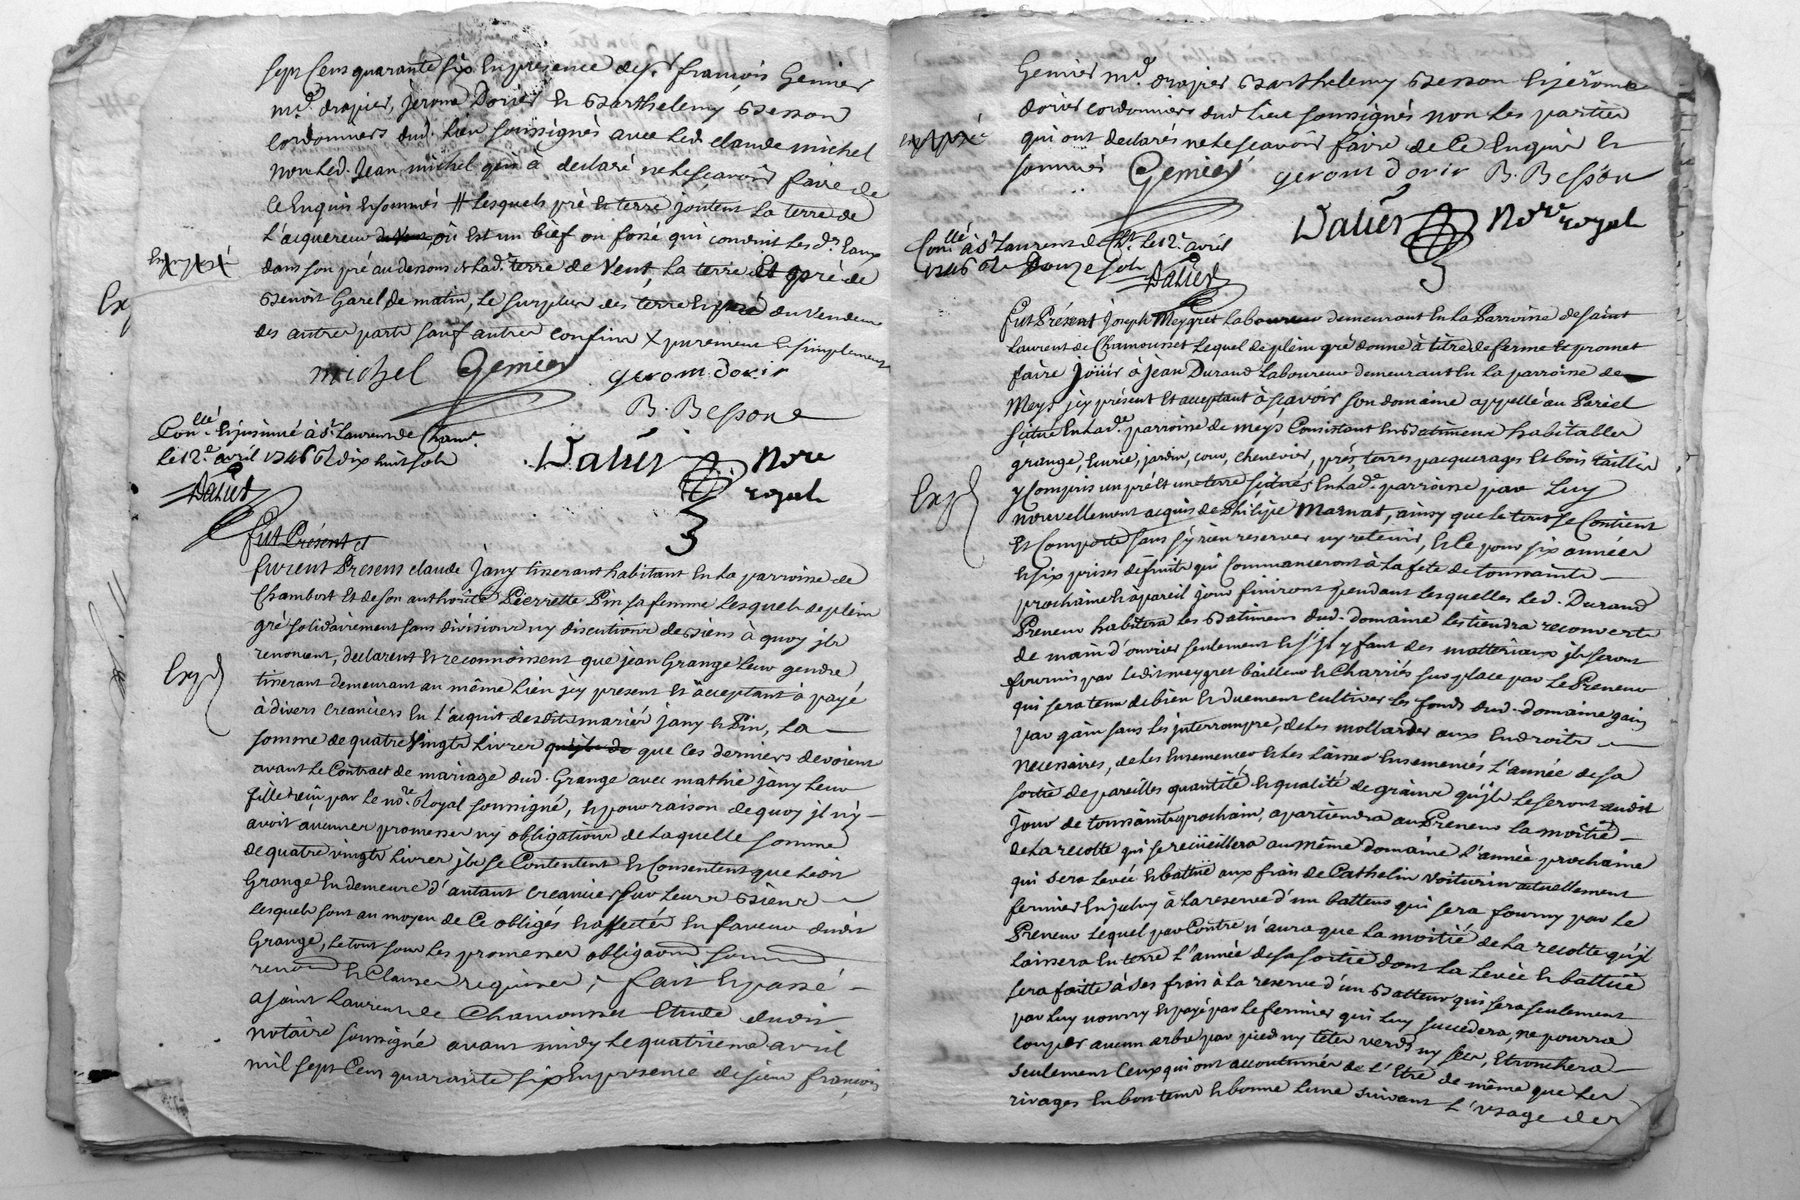 sept Cens quarante six En presence de sr françois Gemier
md. drapier, jerome Dorier Et Barthelemy Besson
cordonniers dud. Lieu soussignés avec Led. claude michel
non Led. Jean michel qui a declaré ne le scavoir faire de
Ce Enquis Et sommés # Lesquels pré Et terre joutent La terre de
L'acquereur où Est un bief ou fossé qui conduit Les d. Eaux
dans son pré au dessous de Lad. terre de Vent, La terre Et pré de
Benoit Garel de matin, Le surplus des terre Et pré du Vendeur
des autres parts sauf autres confins X purement Et simplement
michel Gemier gerom dorir
B. Bessone
Conllé Et insinué à St. Laurent de Cham.
Le 12e. avril 1746 dix huit sols
Dalier
Dalier Nore
royal
Exp
Fut Présent et
Furent Presens claude Jany tisserant habitant En La parroisse de
Chambost Et de son authorité Pierrette Pin sa femme Lesquels de plein
gré solidairement sans division ny discution de biens à quoy ils
renoncent, declarent Et reconnoissent que jean Grange Leur gendre
tisserant demeurant au même Lieu jcy present Et acceptant a payé
à divers creanciers En L'acquit desdits mariés jany Et Pin, La
somme de quatre Vingts Livres que ces derniers devoient
avant Le Contract de mariage dud. Grange avec mathie jany Leur
fille reçu par Le nore. Royal soussigné, Et pour raison de quoy jl n'y
avoit aucunes promesses ny obligations de Laquelle somme
de quatre vingts Livres jls se Contentent Et Consentent que Ledit
Grange En demeure d'autant creancier sur Leurs Biens
Lesquels sont au moyen de Ce obligés Et affectés En faveur dudit
Grange, Le tout sous Les promesses obligaons soumons
renons Et Clauses requises ; fait Et passé
a saint Laurent de Chamousset Etude dudit
notaire soussigné avant midy Le quatrieme avril
mil sept Cens quarante six En presence de sieur françois
Exp
Gemier md. drapier Barthelemy Besson Et jerome
dorier cordonniers dud Lieu soussignés non Les parties
qui ont declarés ne le scavoir faire de Ce Enquis Et
sommés Gemier gerom dorir B. Besson
Dalier Nore
royal
Conllé à St. Laurent de Ch. Le 12e. avril
1746 douze sols
Dalier
Fut Présent Joseph Meygret Laboureur demeurant En La Parroisse de saint
Laurent de Chamousset Lequel de plein gré donne à titre de ferme Et promet
faire joüir à jean Durand Laboureur demeurant En La parroisse de
Meys jcy présent Et acceptant à scavoir son domaine appellé au Pariel
scitué En Lad. parroisse de meys Consistant En Batiments habitables
grange, Ecurie, jardin, cour, chenevier, prés, terres pacquerages Et bois taillis
y Compris un pré Et une terre scitués En Lad. parroisse par Luy
nouvellement acquis de Philipe Marnat, ainsy que Le tout se Contient
Et Comporte sans s'y rien reserver ny retenir, Et Ce pour six années
Et six prises de fruits qui Commanceront à La fete de toussaints
prochaine Et a pareil jour finiront pendant Lesquelles Led. Durand
Preneur habitera Les Batiments dud. domaine Les tiendra recouverts
de main d'ouvrier seulement Et s'jl y faut des matteriaux jls seront
fournis par Ledit meygret bailleur Et Charriés sur place par Le Preneur
qui sera tenu de bien Et duement cultiver Les fonds dud. domaine gain
par gain sans Les interrompre, de Les mollarder aux Endroits
necessaires, de Les Ensemencer Et Les Laisser Ensemencés L'année de sa
sortie de pareilles quantité Et qualité de grains qu'jls Le seront audit
jour de toussaints prochain, apartiendra au Preneur La moitié
de La recolte qui se recüeillera au même domaine L'année prochaine
qui sera Levée Et battue aux frais de Cathelin Voiturin actuellement
fermier En jceluy à La reserve d'un batteur qui sera fourny par Le
Preneur Lequel par Contre n'aura que La moitié de La recolte qu'jl
Laissera En terre L'année de sa sortie dont La Levée Et battue
sera faitte à ses frais à La reserve d'un Batteur qui sera seulement
par Luy nourry Et payé par Le fermier qui Luy succedera, ne pourra
couper aucun arbre par pied ny têter verds ny sec, Etronchera
seulement Ceux qui ont accoutumés de L'Etre de même que Les
rivages En bon tems Et bonne Lune suivant L'Vsage des
Exp